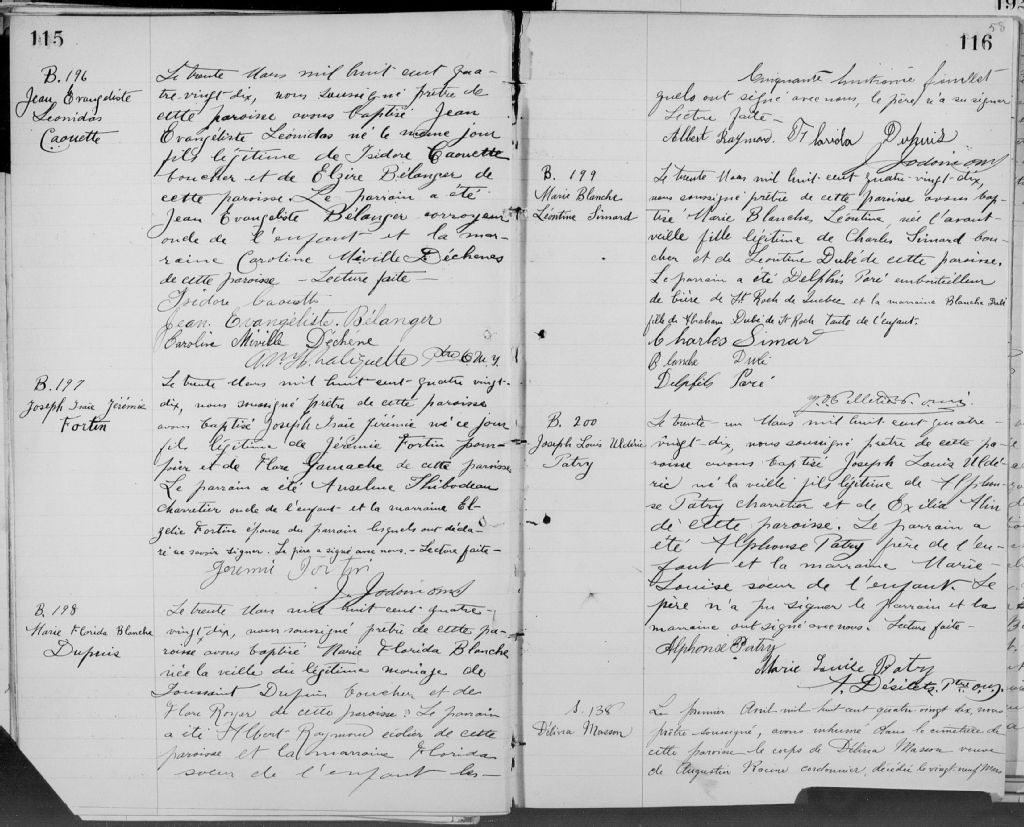 115
B. 196
Jean Evangéliste
Leonidas
Caouette
Le trente Mars mil huit cent qua-
tre-vingt dix, nous soussigné prêtre de
cette paroisse avons baptisé Jean
Evangéliste Leonidas né le meme jour
fils légitime de Isidore Caouette
boucher et de Elzire Bélanger de
cette paroisse. Le parrain a été
Jean Evangeliste Bélanger corroyeur
oncle de l'enfant et la mar-
raine Caroline Miville Déchènes
de cette paroisse - Lecture faite -
Isidore Caouette
Jean Evangéliste Bélanger
Caroline Miville Déchéne
Valiquette Ptre O.M.I.
B. 197
Joseph Isaïe Jérémie
Fortin
Le trente Mars mil huit cent quatre vingt-
dix, nous soussigné prêtre de cette paroisse
avons baptisé Joseph Isaïe Jérémie né ce jour
fils légitime de Jérémie Fortin
et de Flore Gamache de cette paroisse
Le parrain a été Anselme Thibodeau
charretier oncle de l'enfant et la marraine El-
zelie Fortin épouse du parrain lesquels ont décla-
ré ne savoir signer. Le père a signé avec nous. - Lecture faite -
Jeremie Fortin
Jodoin omi
B. 198
Marie Florida Blanche
Dupuis
Le trente Mars mil huit cent quatre-
vingt dix, nous soussigné prêtre de cette pa-
roisse avons baptisé Marie Florida Blanche
née la veille du légitime mariage de
Toussaint Dupuis boucher et de
Flore Royer de cette paroisse. Le parrain
a été Albert Raymond écolier de cette
paroisse et la marraine Florida
soeur de l'enfant les-
116
58
Cinquante huitième feuillet
quels ont signé avec nous, le père n'a su signer
Lecture faite -
Albert Raymond. Florida Dupuis
Jodoin omi
B. 199
Marie Blanche
Léontine Simard
Le trente Mars mil huit cent quatre-vingt dix,
nous soussigné prêtre de cette paroisse avons bap-
tisé Marie Blanche Léontine, née l'avant-
veille fille légitime de Charles Simard bou-
cher et de Léontine Dubé de cette paroisse.
Le parrain a été Delphis Paré embouteilleur
de bière de St Roch de Quebec et la marraine Blanche Dubé
fille de Abraham Dubé de St Roch tante de l'enfant.
Charles Simar
Blanche Dubé
Delphis Paré
Pelletier omi
B. 200
Joseph Louis Uldéric
Patry
Le trente-un Mars mil huit cent quatre-
vingt-dix, nous soussigné prêtre de cette pa-
roisse avons baptisé Joseph Louis Uldé-
ric né la veille fils légitime de Alphon-
se Patry charretier et de Exilia Alin
de cette paroisse. Le parrain a
été Alphonse Patry père de l'en-
fant et la marraine Marie-
Louise soeur de l'enfant. Le
père n'a pu signer le parrain et la
marraine ont signé avec nous. Lecture faite -
Alphonse Patry
Marie Louise Patry
A. Désilets Ptre omi.
S. 138
Délina Masson
Le premier Avril mil huit cent quatre vingt dix, nous
prêtre soussigné, avons inhumé dans le cimetière de
cette paroisse le corps de Délina Masson veuve
de Augustin Racine cordonnier, décédée le vingt-neuf Mars